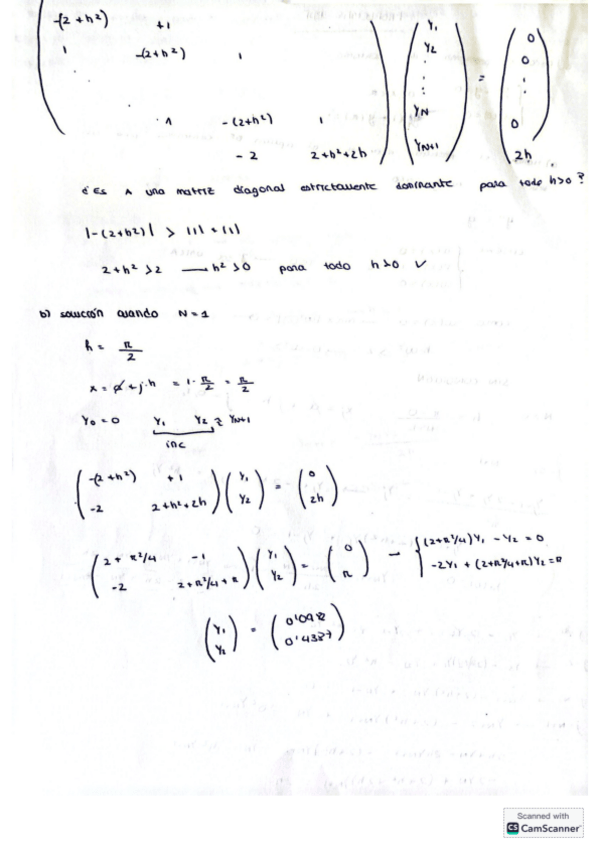 -(2+h²) +1 Y₁ 0
1 -(2+h²) 1 Y₂ 0
1 -(2+h²) 1 YN = 0
-2 2+h²+2h YN+1 2h
¿Es A una matriz diagonal estrictamente dominante para todo h>0?
|-(2+h²)| > |1| + |1|
2+h² > 2 — h² > 0 para todo h>0 ✓
b) solución cuando N=1
h = π/2
x = 0 + j·h = 1·π/2 = π/2
Y₀ = 0 Y₁ Y₂ YN+1
inc
-(2+h²) +1 Y₁ = 0
-2 2+h²+2h Y₂ 2h
2+π²/4 -1 Y₁ = 0 — (2+π²/4)Y₁ - Y₂ = 0
-2 2+π²/4+π Y₂ π -2Y₁ + (2+π²/4+π)Y₂ = π
Y₁ = 0'0982
Y₂ 0'4387
Scanned with
CS CamScanner